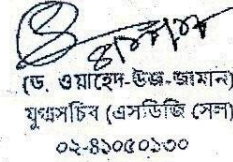 (ড. ওয়াহেদ-উজ-জামান)
যুগ্মসচিব (এসডিজি সেল)
০২-৪১০৫০১৩০